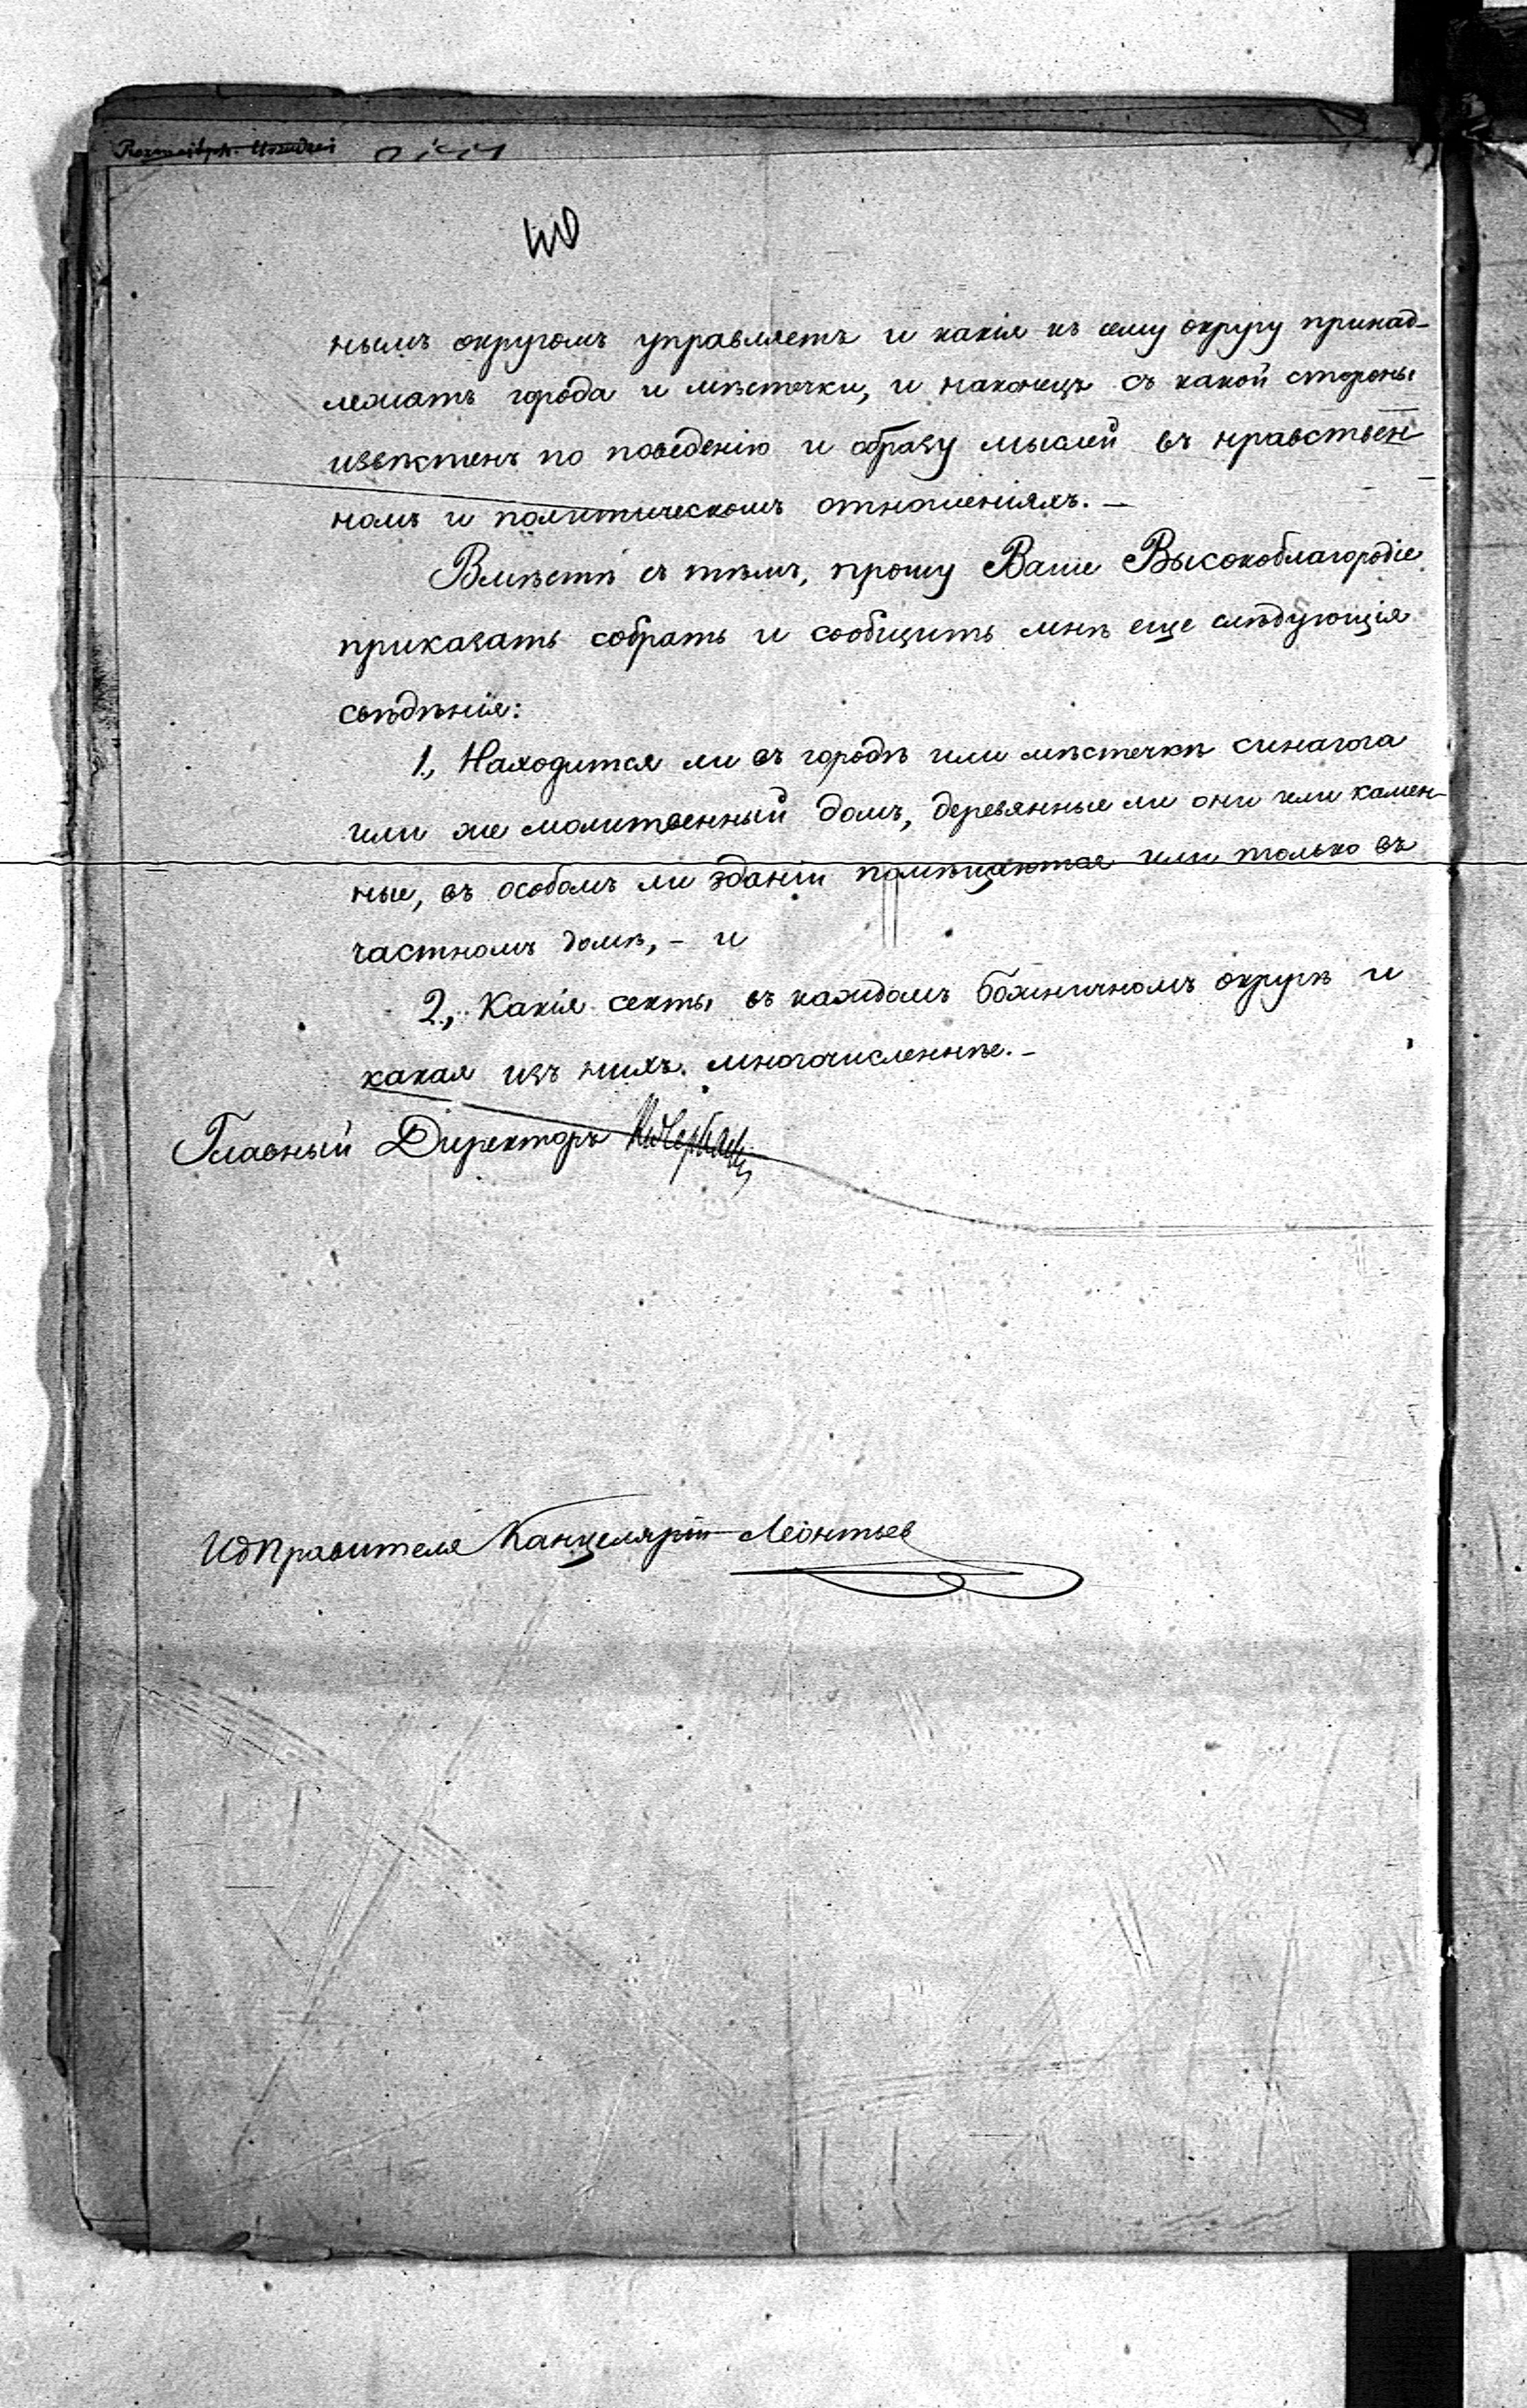 нымъ округомъ управляетъ и какія къ сему округу принад-
лежатъ города и мѣстечки, и наконецъ съ какой стороны
извѣстенъ по поведенію и образу мыслей въ нравствен
номъ и политическомъ отношеніяхъ. —
Вмѣстѣ съ тѣмъ, прошу Ваше Высокоблагородіе
приказать собрать и сообщить мнѣ еще слѣдующія
свѣдѣнія:
1., Находится ли въ городѣ или мѣстечкѣ синагога
или же молитвенный домъ, деревянные ли они или камен-
ные, въ особомъ ли зданіи помѣщаются или только въ
частномъ домѣ, – и
2., Какія секты въ каждомъ божничномъ округѣ и
какая изъ нихъ многочисленнѣе. –
Главный Директоръ
Ид Правителя Канцеляріи Леонтьев